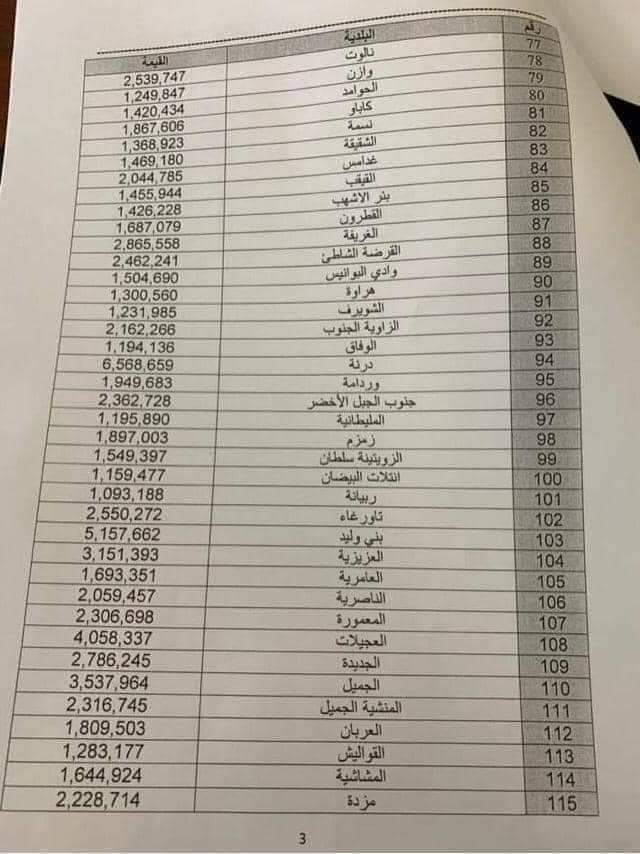 رقم البلدية القيمة
77 نالوت 2,539,747
78 وازن 1,249,847
79 الحوامد 1,420,434
80 كاباو 1,867,606
81 نسمة 1,368,923
82 الشقيقة 1,469,180
83 غدامس 2,044,785
84 القيقب 1,455,944
85 بئر الاشهب 1,426,228
86 القطرون 1,687,079
87 الغريفة 2,865,558
88 القرضة الشاطئ 2,462,241
89 وادي البوانيس 1,504,690
90 هراوة 1,300,560
91 الشويرف 1,231,985
92 الزاوية الجنوب 2,162,266
93 الوفاق 1,194,136
94 درنة 6,568,659
95 وردامة 1,949,683
96 جنوب الجبل الأخضر 2,362,728
97 المليطانية 1,195,890
98 زمزم 1,897,003
99 الزويتينة سلطان 1,549,397
100 انتلات البيضان 1,159,477
101 ربيانة 1,093,188
102 تاورغاء 2,550,272
103 بني وليد 5,157,662
104 العزيزية 3,151,393
105 العامرية 1,693,351
106 الناصرية 2,059,457
107 المعمورة 2,306,698
108 العجيلات 4,058,337
109 الجديدة 2,786,245
110 الجميل 3,537,964
111 المنشية الجميل 2,316,745
112 العربان 1,809,503
113 القواليش 1,283,177
114 المشاشية 1,644,924
115 مزدة 2,228,714
3